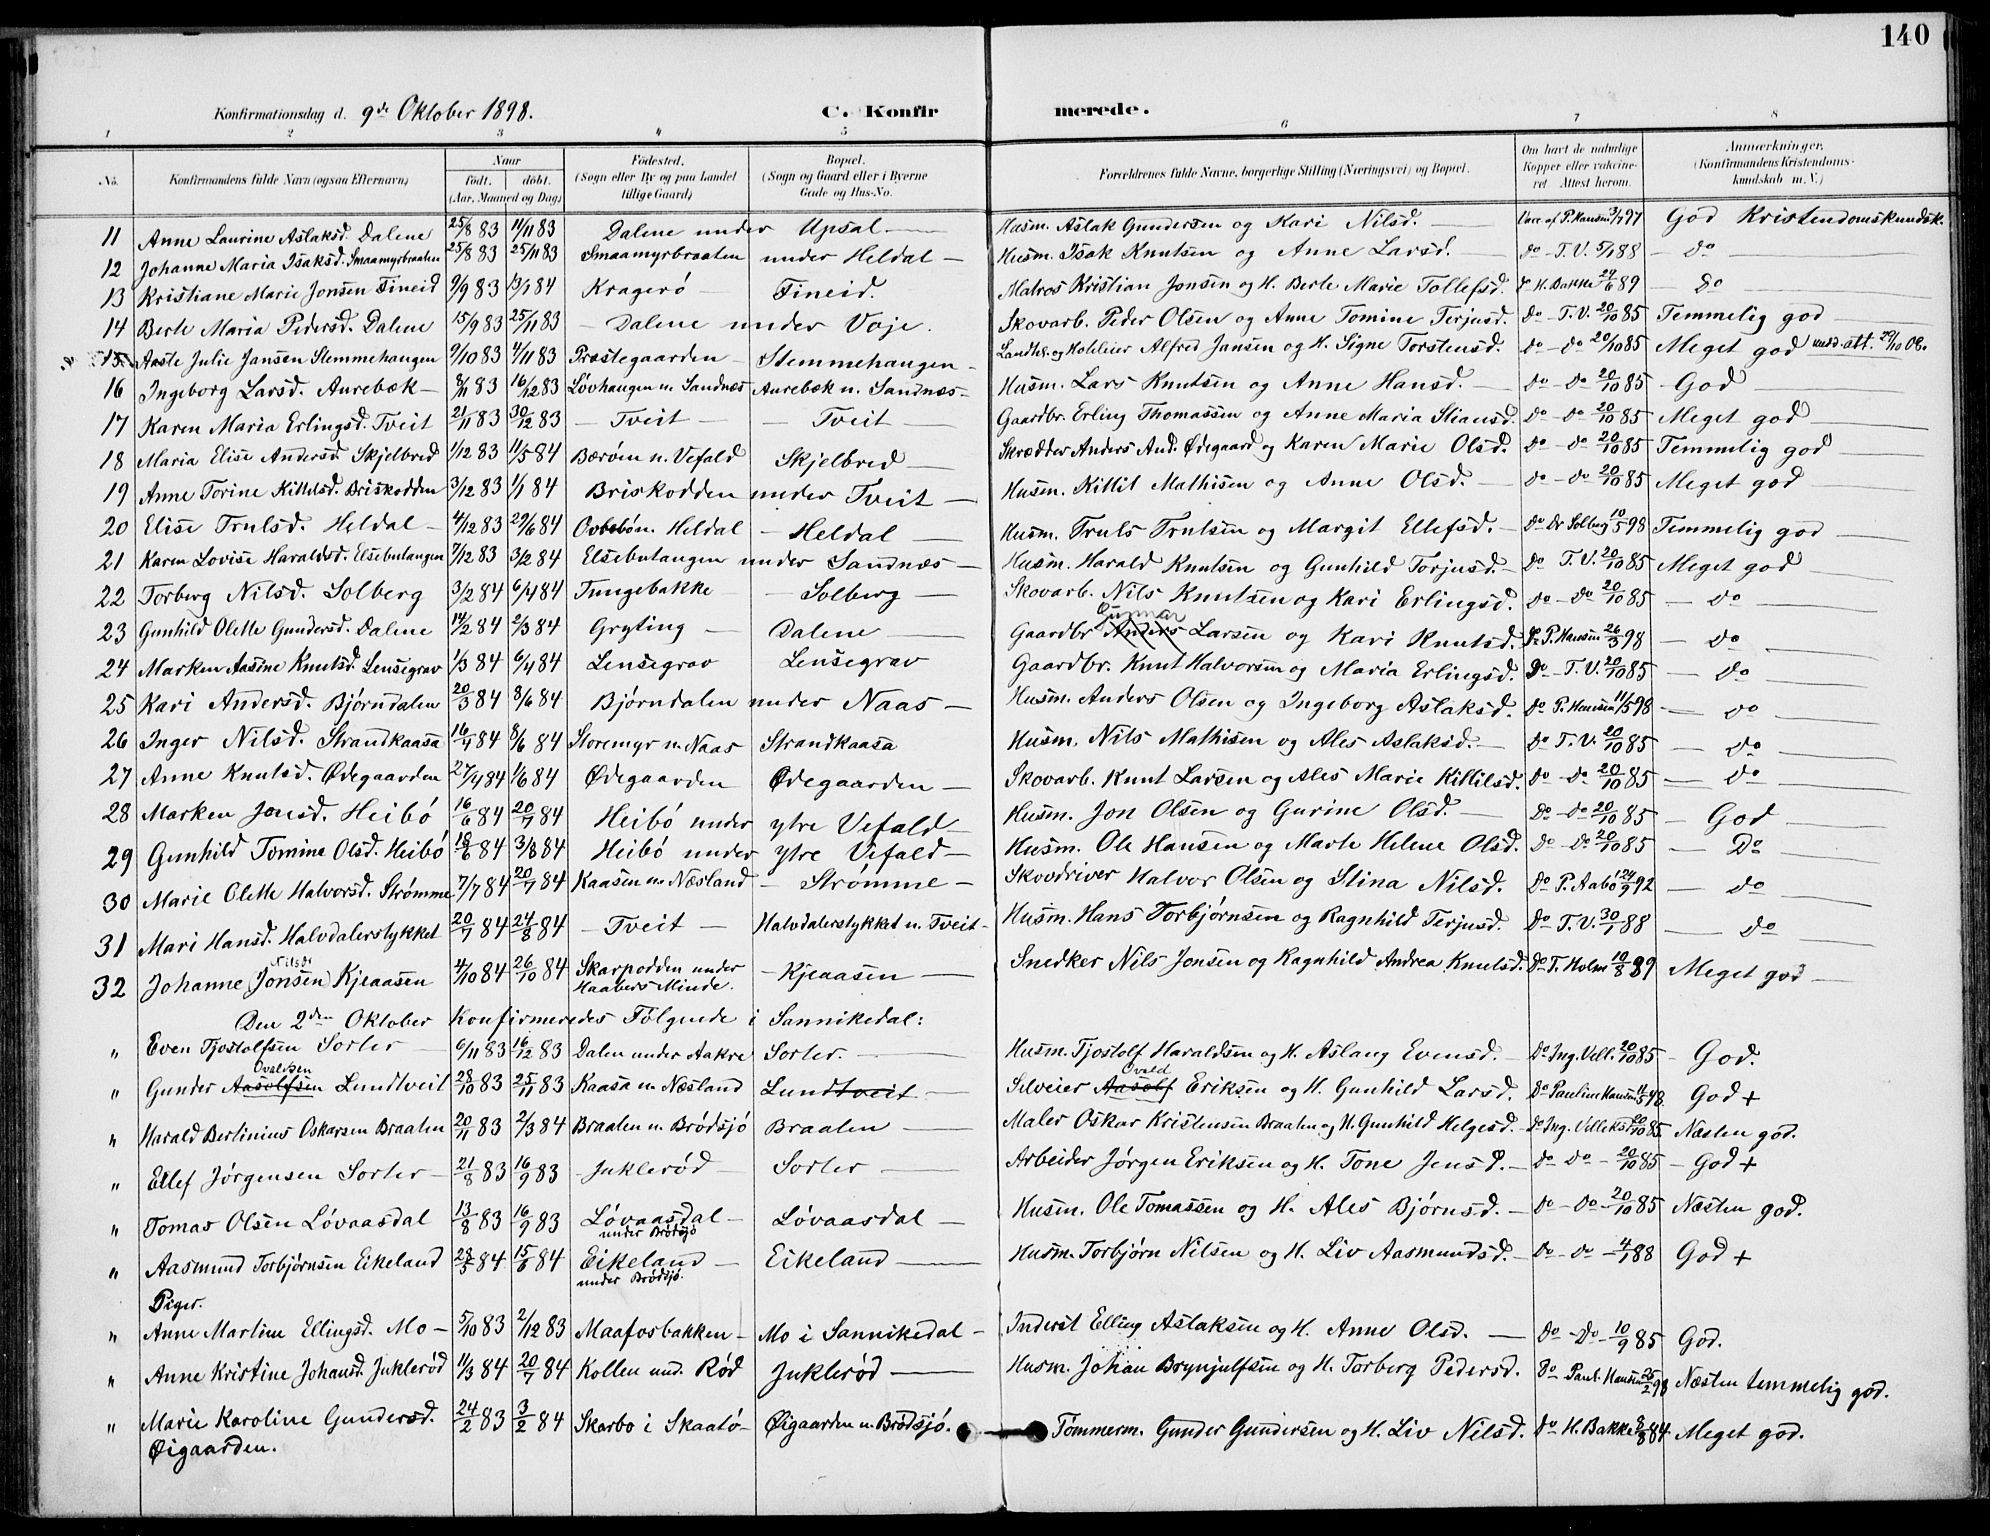 140
Konfirmationsdag d. 9de Oktober 1898. C. Konfir merede.
1 2 3 4 5 6 7 8
No. Konfirmandens fulde Navn (ogsaa Efternavn) Naar født. døbt. (Aar, Maaned og Dag) Fødested. (Sogn eller By og paa Landet tillige Gaard) Bopæl. (Sogn og Gaard eller i Byerne Gade og Hus-No. Forældrenes fulde Navne, borgerlige Stilling (Næringsvei) og Bopæl. Om havt de naturlige Kopper eller vakcineret Attest herom. Anmærkninger. (Konfirmandens Kristendomskundskab m. V.)
11 Anne Laurine Aslaksd. Dalene 25/8 83 11/11 83 Dalene under Upsal — Husm. Aslak Gundersen og Kari Nilsd. — Vacc. af P. Hansen 3/7 97 God Kristendomskundsk.
12 Johanne Maria Isaksd. Smaamyrbraaten 25/8 83 25/11 83 Smaamyrbraaten under Heldal — Husm. Isak Knutsen og Anne Larsd. do – T. V. 5/1 88 — do
13 Kristiane Marie Jonsen Fineid 9/9 83 13/1 84 Kragerö — Fineid. Matros Kristian Jonsen og H. Berte Marie Tollefsd. H. Bakke 24/6 89 — do
14 Berte Maria Pedersd. Dalene 15/9 83 25/11 83 – Dalene under Vaje. Skovarb. Peder Olsen og Anne Tomine Terjusd. do – T. V. 20/10 85 Temmelig god —
15 Aaste Julie Jansen Stemmehangen 9/10 83 4/11 83 Præstegaarden – Stemmehangen – Landh. og Alfred Jansen og H. Signe Torstensd. do – do 20/10 85 Meget god
16 Ingeborg Larsd. Aurebæk – 8/11 83 16/12 83 Løvhaugen u. Sandnæs Aurebæk u. Sandnæs – Husm. Lars Knutsen og Anne Hansd. — do – do 20/10 85 – God —
17 Karen Maria Erlingsd. Tveit 21/11 83 30/12 83 – Tveit – – Tveit — Gaardbr. Erling Thomassen og Anne Maria Stiansd. do – do 20/10 85 Meget god —
18 Maria Elise Andersd. Skjelbred 1/12 83 11/5 84 Bærøen u. Vefald Skjelbred — Skrædder Anders And. Ødegaard og Karen Marie Olsd. do – do 20/10 85 Temmelig god —
19 Anne Torine Kittelsd. Briskodden 3/12 83 1/1 84 Briskodden under Tveit — Husm. Kittil Mathisen og Anne Olsd. — do – do 20/10 85 Meget god —
20 Elise Trulsd. Heldal – 4/12 83 29/6 84 Heldal – Heldal — Husm. Truls Trulsen og Margit Ellefsd. – do Dr Solberg 10/5 98 Temmelig god —
21 Karen Lovise Haraldsd. Elsebutangen 7/12 83 3/2 84 Elsebutangen under Sandnæs — Husm. Harald Knutsen og Gunhild Torjusd. – do T. V. 20/10 85 Meget god —
22 Torberg Nilsd. Solberg 3/2 84 6/4 84 Tungebakke – Solberg — Skovarb. Nils Knutsen og Kari Erlingsd. do – do 20/10 85 — do —
23 Gunhild Olette Gundersd. Dalene 14/2 84 2/3 84 Gryting — Dalene — Gaardbr Anders Gunnar Larsen og Kari Knutsd. do P. Hansen 26/3 98 — do —
24 Marken Aasine Knutsd. Lensegrav 1/3 84 6/4 84 Lensegrav Lensegrav Gaardbr. Knut Halvorsen og Maria Erlingsd. do T. V. 20/10 85 — do —
25 Kari Andersd. Bjørndalen 20/3 84 8/6 84 Bjørndalen under Naas — Husm. Anders Olsen og Ingeborg Aslaksd. do P. Hansen 11/5 98 — do —
26 Inger Nilsd. Strandkaasa 16/4 84 8/6 84 Storemyr u. Naas Strandkaasa Husm. Nils Mathisen og Ales Aslaksd. — do T. V. 20/10 85 — do —
27 Anne Knutsd. Ødegaarden 27/4 84 1/6 84 Ødegaarden Ødegaarden – Skovarb. Knut Larsen og Ales Marie Kittilsd. do – do 20/10 85 — do —
28 Marken Jonsd. Heibö 16/6 84 20/7 84 Heibö under ytre Vefald – Husm. Jon Olsen og Gurine Olsd. — do – do 20/10 85 – God —
29 Gunhild Tomine Olsd. Heibö 18/6 84 3/8 84 Heibö under ytre Vefald – Husm. Ole Hansen og Marte Helene Olsd. do – do 20/10 85 – Do —
30 Marie Olette Halvorsd. Strømme 7/7 84 20/7 84 Kaasen u. Næsland – Strømme – Skovdriver Halvor Olsen og Stina Nilsd. do P. Aabo 24/9 92 — do —
31 Mari Hansd. Halvdalerstykket 20/7 84 24/8 84 – Tveit – Halvdalerstykket u. Tveit – Husm. Hans Torbjørnsen og Ragnhild Terjusd. do T. V. 30/1 88 — do —
32 Johanne (Jonsen) Nilsd. Kjeaasen 4/10 84 26/10 84 Skarpodden under Haabets Minde. – Kjeaasen — Snedker Nils Jonsen og Ragnhild Andrea Knutsd. do T. Holm 10/8 89 Meget god —
Den 2den Oktober Konfirmeredes Følgende i Sannikedal:
" Even Tjostolfsen Sorter — 6/11 83 16/12 83 Dalen under Aakre Sorter. — Husm. Tjostolf Haraldsen og H. Aslaug Evensd. — do Ing. Vell. 20/10 85 – God.
" Gunder Aasolfsen Ovaldsen Lundtveit 28/10 83 25/11 83 Kaasa u. Næsland Lundtveit – Selveier Aasolf Ovald Eriksen og H. Gunhild Larsd. do Pauline Hansen 11/5 98. God +
" Harald Bertinius Oskarsen Braaten 20/11 83 2/3 84 Braaten u. Brødsjö Braaten — Maler Oskar Kristensen Braaten og H. Gunhild Helgesd. – do Ing. Velleksd 20/10 85. Næsten god.
" Ellef Jørgensen Sorter – 21/8 83 16/9 83 – Juklerød – Sorter — Arbeider Jørgen Eriksen og H. Tone Jensd. – do do – 20/10 85 – God +
" Tomas Olsen Lóvaasdal 13/8 83 16/9 83 Lóvaasdal – under Brødsjö Lóvaasdal — Husm. Ole Tomassen og H. Ales Bjørnsd. – do – do – 20/10 85 Næsten god.
" Aasmund Torbjørnsen Eikeland 28/5 84 15/6 84 Eikeland – under Brødsjö. Eikeland — Husm. Torbjørn Nilsen og H. Liv Aasmundsd. – do – do – 4/1 88 God +
Piger.
" Anne Martine Ellingsd. Mo – 5/10 83 2/12 83 Maafosbakken – Mo i Sannikedal – Inderst Elling Aslaksen og H. Anne Olsd. — do – do – 10/9 85 God.
" Anne Kristine Johansd. Juklerød 11/3 84 20/7 84 Kollen und. Rød Juklerød — Husm. Johan Brynjulfsen og H. Torberg Pedersd. do Paul. Hansen 25/2 98 Næsten temmelig god.
" Marie Karoline Gundersd. Øigaarden. 24/2 83 3/2 84 Skarbo i Skaatö – Øigaarden u. Brødsjö. Tömmerm. Gunder Gundersen og H. Liv Nilsd. do H. Bakke 8/8 84 Meget god.